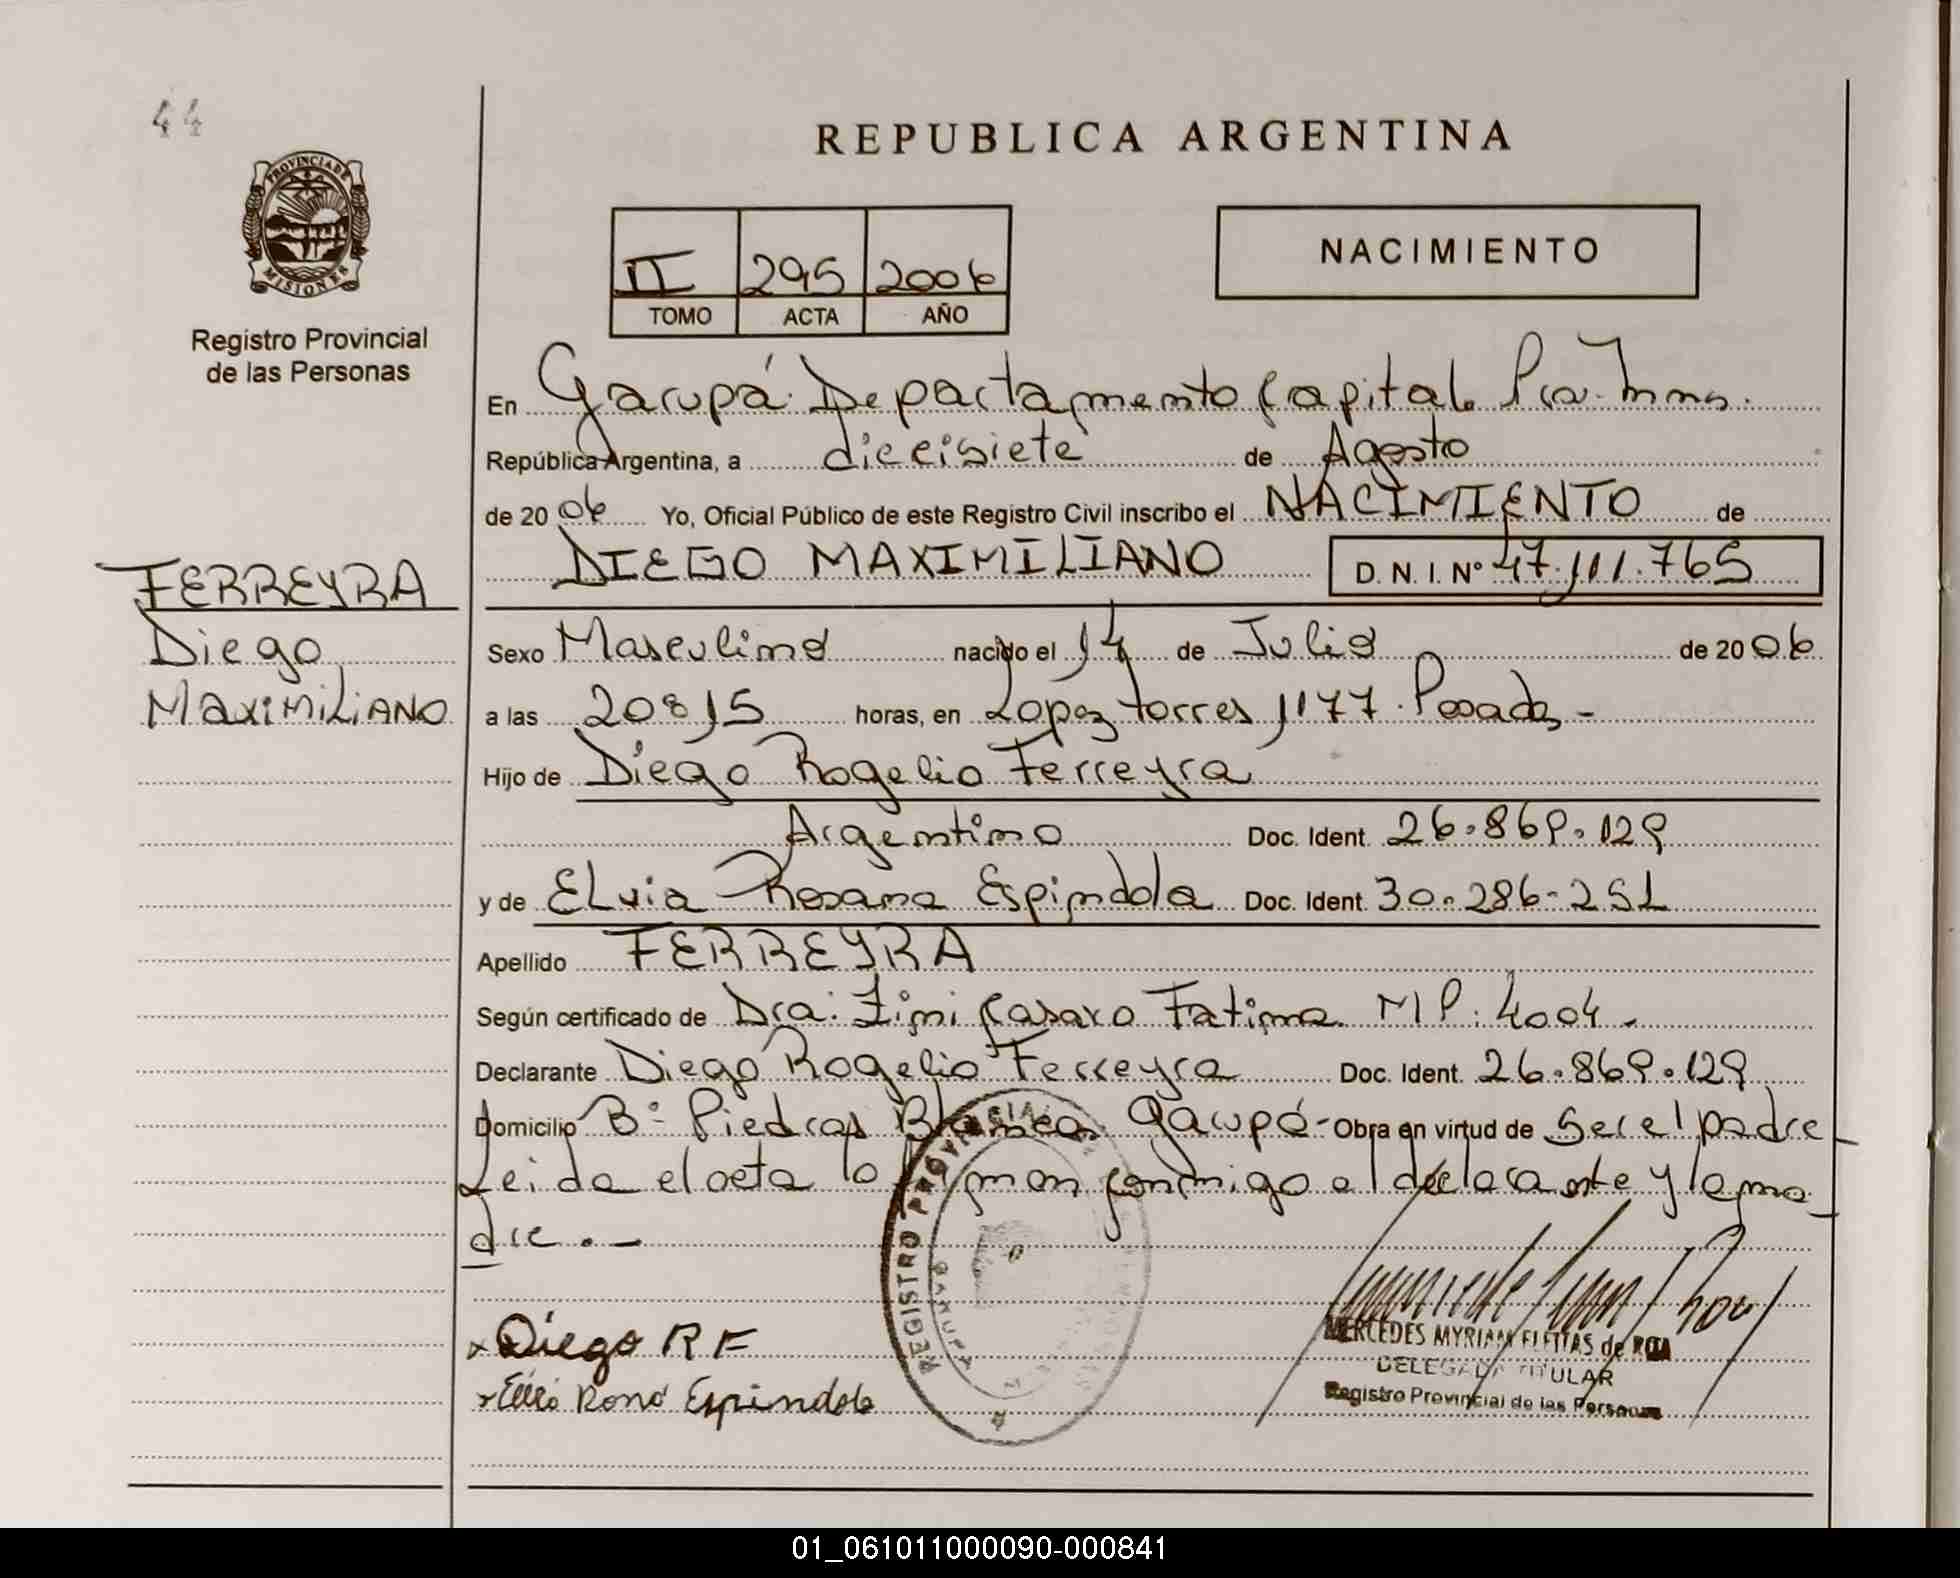 44
PROVINCIA DE
MISIONES
Registro Provincial
de las Personas
REPUBLICA ARGENTINA
II 295 2006
TOMO ACTA AÑO
NACIMIENTO
En Garupá. Departamento Capital. Pcia. Mnes.
República Argentina, a diecisiete de Agosto
de 2006 Yo, Oficial Público de este Registro Civil inscribo el NACIMIENTO de
DIEGO MAXIMILIANO D.N.I. Nº 47.111.765
FERREYRA
Diego
MAXIMILIANO
Sexo Masculino nacido el 14 de Julio de 2006
a las 20:15 horas, en Lopez torres 1177. Posadas -
Hijo de Diego Rogelio Ferreyra
Argentino Doc. Ident. 26.869.129
y de ELvia Rosana Espindola Doc. Ident. 30.286.251
Apellido FERREYRA
Según certificado de Dra. Casaro Fatima. MP. 4004.
Declarante Diego Rogelio Ferreyra Doc. Ident. 26.869.129
Domicilio Bº Piedras Blancas Garupá - Obra en virtud de Ser el padre
Leida el acta la firman conmigo el declarante y la ma
dre. -
REGISTRO PROVINCIAL
x Diego R F
x Espindola
MERCEDES MYRIAM FLEITAS de
DELEGADA TITULAR
Registro Provincial de las Personas
01_061011000090-000841